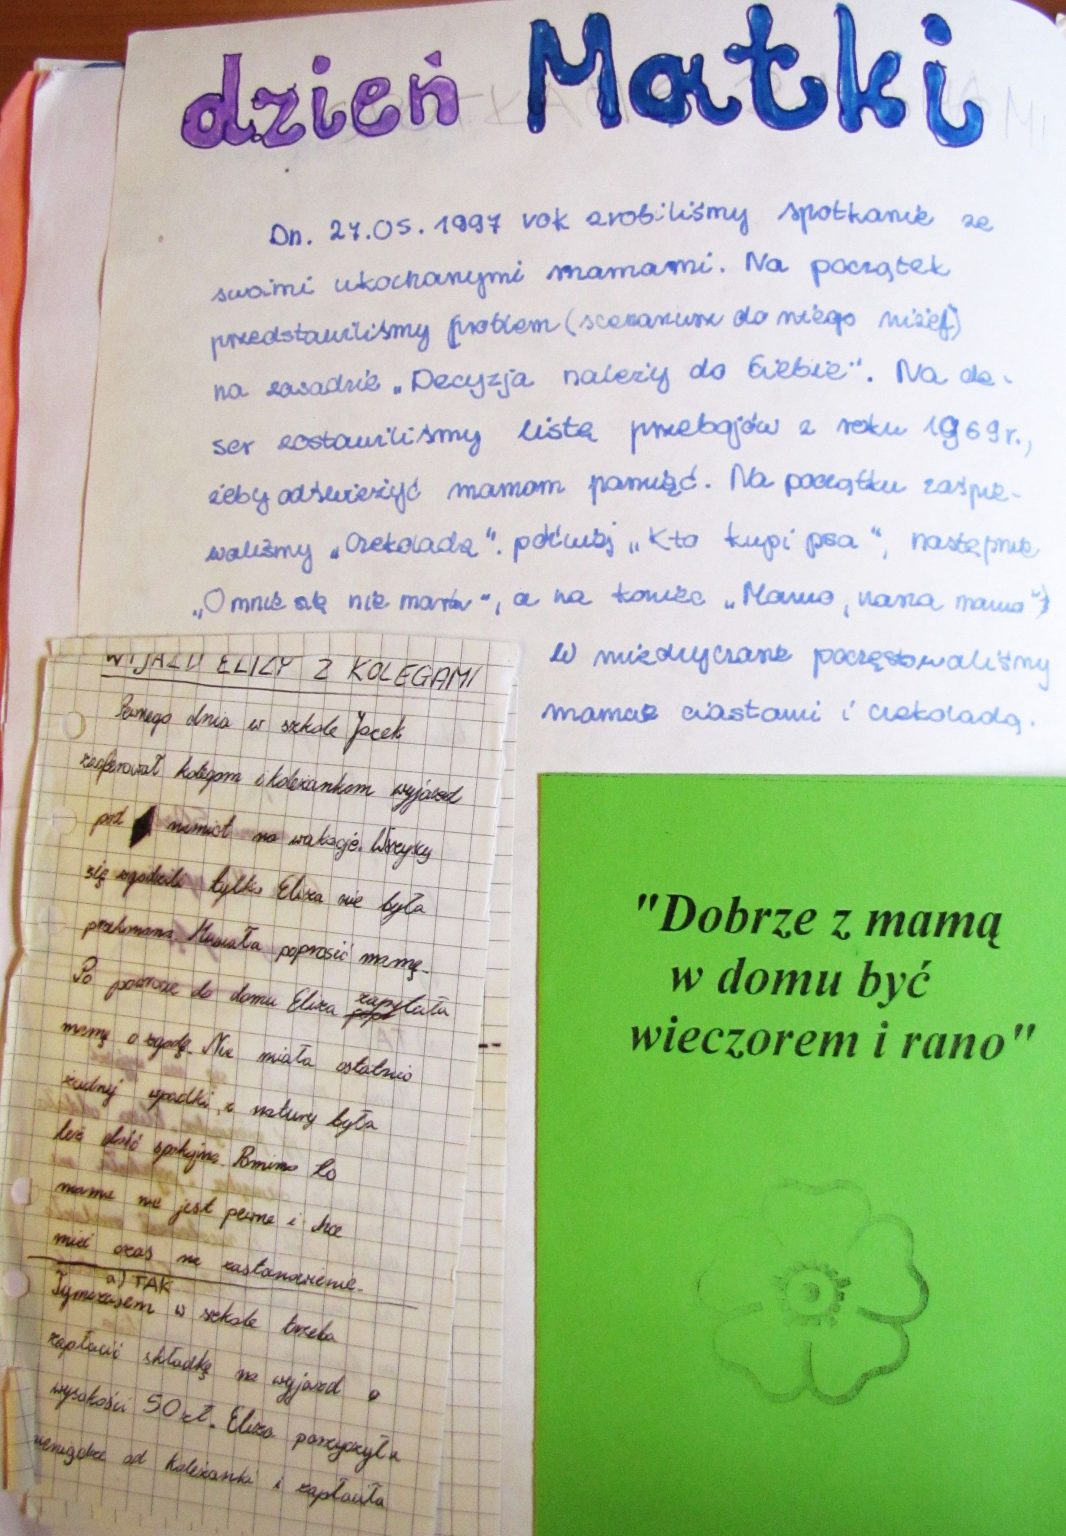 dzień Matki
Dn. 27.05.1997 rok zrobiliśmy spotkanie ze
swoimi ukochanymi mamami. Na początek
przedstawiliśmy problem (scenariusz do niego niżej)
na zasadzie „Decyzja należy do Ciebie". Na de-
ser zostawiliśmy listę przebojów z roku 1969r.,
żeby odświeżyć mamom pamięć. Na początku zaśpie-
waliśmy „Czekoladę". później „Kto kupi psa", następnie
„O mnie się nie martw", a na koniec „Mamo, nasza mamo"
W międzyczasie poczęstowaliśmy
mamcie ciastami i czekoladą.
WYJAZD ELIZY Z KOLEGAMI
Pewnego dnia w szkole Jacek
zaoferował kolegom i koleżankom wyjazd
pod namiot na wakacje. Wszyscy
się zgodzili tylko Eliza nie była
przekonana Musiała poprosić mamę.
Po powrocie do domu Eliza zapytała
mamę o zgodę. Nie miała ostatnio
żadnej wpadki, z natury była
też dość spokojna. Pomimo to
mama nie jest pewna i chce
mieć czas na zastanowienie.
a) TAK
Tymczasem w szkole trzeba
zapłacić składkę na wyjazd o
wysokości 50 zł. Eliza pożyczyła
pieniądze od koleżanki i zapłaciła
"Dobrze z mamą
w domu być
wieczorem i rano"